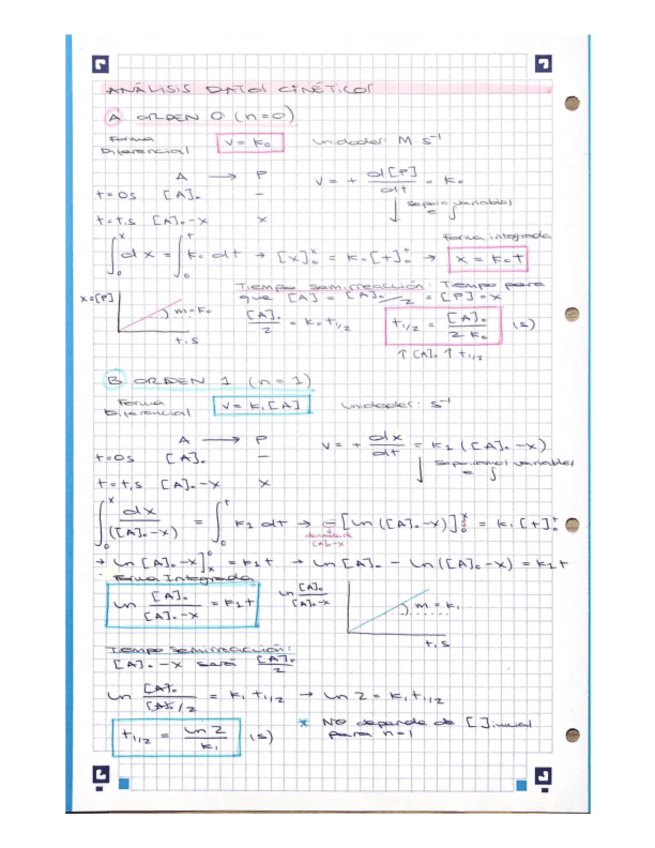 ANÁLISIS DATOS CINÉTICOS
A ORDEN 0 (n=0)
Forma Diferencial v = k₀ Unidades: M s⁻¹
A → P v = + d[P]/dt = k₀
t=0s [A]₀ –
separo variables e ∫
t=t,s [A]₀-x x
Forma integrada
∫₀ˣ dx = ∫₀ᵗ k₀ dt → [x]₀ˣ = k₀[t]₀ᵗ → x = k₀t
Tiempo semirreacción: Tiempo para
que [A] = [A]₀/2 = [P] = x
x=[P] m=k₀ t,s
[A]₀/2 = k₀t₁/₂ t₁/₂ = [A]₀/2k₀ (s)
↑[A]₀ ↑t₁/₂
B ORDEN 1 (n=1)
Forma Diferencial v = k₁[A] Unidades: s⁻¹
A → P v = + dx/dt = k₁([A]₀-x)
t=0s [A]₀ –
separamos variables e ∫
t=t,s [A]₀-x x
∫₀ˣ dx/([A]₀-x) = ∫₀ᵗ k₁ dt → -[ln([A]₀-x)]₀ˣ = k₁[t]₀ᵗ
derivada de [A]₀-x
→ ln[A]₀-x]ₓ⁰ = k₁t → ln[A]₀ - ln([A]₀-x) = k₁t
Forma Integrada
ln [A]₀/[A]₀-x = k₁t ln [A]₀/[A]₀-x m=k₁
t,s
Tiempo semirreacción:
[A]₀-x será [A]₀/2
ln [A]₀/[A]₀/2 = k₁t₁/₂ → ln 2 = k₁t₁/₂
t₁/₂ = ln 2/k₁ (s) * NO depende de [ ]inicial
para n=1